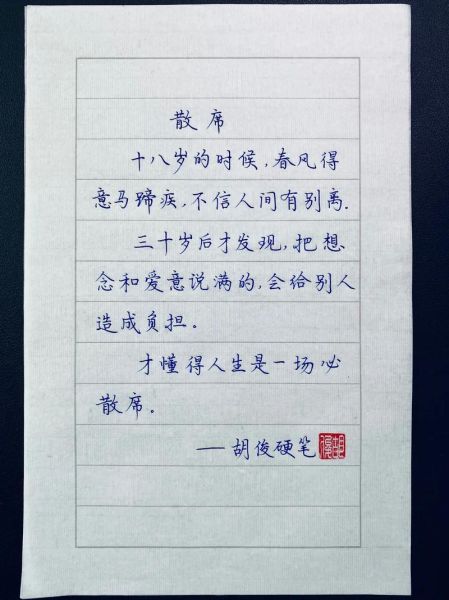 散席
十八岁的时候,春风得
意马蹄疾,不信人间有别离.
三十岁后才发观,把想
念和爱意说满的,会给别人
造成负担。
才懂得人生是一场必
散席.
——胡俊硬笔